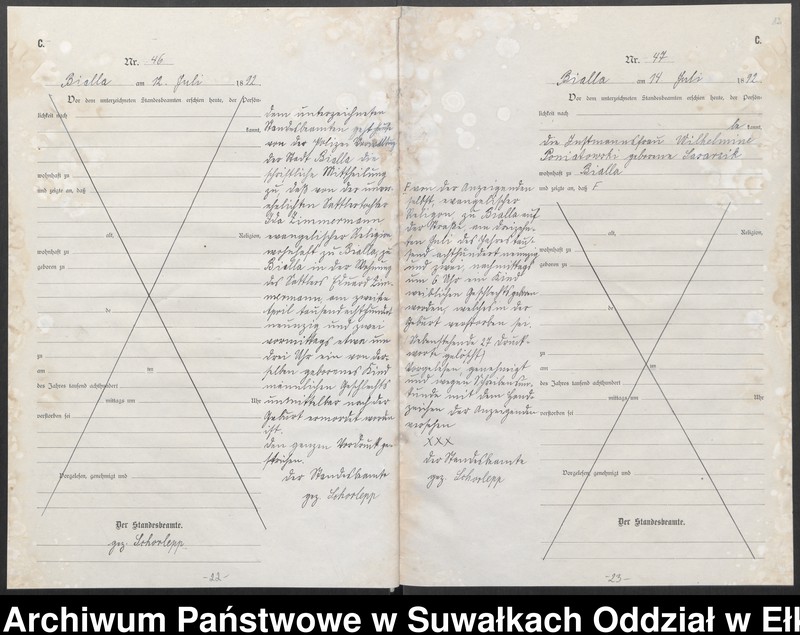 C.
Nr. 46
Bialla am 12. Juli 1892
Vor dem unterzeichneten Standesbeamten erschien heute, der Persön-
lichkeit nach
kannt,
wohnhaft zu
und zeigte an, daß
alt, Religion,
wohnhaft zu
geboren zu
de
zu
am im
des Jahres tausend achthundert
mittags um Uhr
verstorben sei
Vorgelesen, genehmigt und
Der Standesbeamte.
gez. Schorlepp
dem unterzeichneten
Standesbeamten ist heute
von der Polizei Verwaltung
der Stadt Bialla die
schriftliche Mittheilung
zu, daß von der unver-
ehelichten Sattlertochter
Ida Zimmermann
evangelischer Religion
wohnhaft zu Bialla, zu
Bialla in der Wohnung
des Sattlers Eduard Zim-
mermann am zweiten
April tausend achthundert
neunzig und zwei
vormittags etwa um
drei Uhr ein von der-
selben geborenes Kind
männlichen Geschlechts
unmittelbar nach der
Geburt ermordet worden
ist.
Den ganzen Vordruck ge-
strichen.
Der Standesbeamte
gez. Schorlepp
-22-
C.
Nr. 47
Bialla am 14 Juli 1892
Vor dem unterzeichneten Standesbeamten erschien heute, der Persön-
lichkeit nach
be kannt,
die Instmannsfrau Wilhelmine
Poniatowski geborene
wohnhaft zu Bialla
und zeigte an, daß F
alt, Religion,
wohnhaft zu
geboren zu
de
zu
am im
des Jahres tausend achthundert
mittags um Uhr
verstorben sei
Vorgelesen, genehmigt und
Der Standesbeamte.
F von der Anzeigenden
selbst, evangelischer
Religion, zu Bialla auf
der Straße, am dreizehn-
ten Juli des Jahres tau-
send achthundert neunzig
und zwei, nachmittags
um 6 Uhr ein Kind
weiblichen Geschlechts geboren
worden, welches in der
Geburt verstorben sei.
(Nebenstehende 27 Druck-
worte gelöscht)
Vorgelesen genehmigt
und wegen Schreibensun-
kunde mit dem Hand-
zeichen der Anzeigenden
versehen
XXX
Der Standesbeamte
gez. Schorlepp
-23-
Archiwum Państwowe w Suwałkach Oddział w Ełk